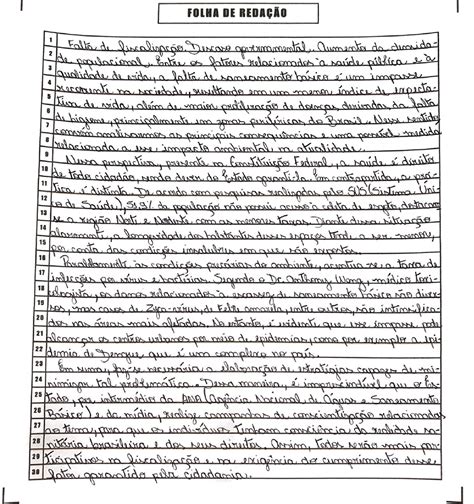 FOLHA DE REDAÇÃO
1 Falta de fiscalização. Descaso governamental. Aumento da densida-
2 de populacional. Entre os fatores relacionados à saúde pública e à
3 qualidade de vida, a falta de saneamento básico é um impasse
4 recorrente na sociedade, resultando em um menor índice de expecta-
5 tiva de vida, além de maior proliferação de doenças derivadas da falta
6 de higiene, principalmente em zonas periféricas do Brasil. Nesse sentido,
7 convém analisarmos as principais consequências e uma possível medida
8 relacionada a esse impacto ambiental na atualidade.
9 Nessa perspectiva, presente na Constituição Federal, a saúde é direito
10 de todo cidadão, sendo dever do Estado garanti-la. Em contrapartida, a prá-
11 tica é distinta. De acordo com pesquisas realizadas pelo SUS (Sistema Úni-
12 co de Saúde), da população não possui acesso à coleta de esgoto, destacan-
13 se a região Norte e Nordeste com as menores taxas. Diante dessa situação
14 alarmante, a longevidade dos habitantes desses espaços tende a ser menor,
15 por conta das condições insalubres em que são expostos.
16 Paralelamente às condições precárias do ambiente, acentua-se a taxa de
17 infecções por vírus e bactérias. Segundo o Dr. Anthony Wong, médico toxi-
18 cologista, os danos relacionados à escassez de saneamento básico são diver-
19 sos, mas casos de Zica-vírus, de Febre amarela, entre outros, são intensifica-
20 dos nas áreas mais afetadas. No entanto, é evidente que esse impasse pode
21 alcançar os centros urbanos por meio de epidemias, como por exemplo a Epi-
22 demia de Dengue, que é um complexo no país.
23 Em suma, faz-se necessária a elaboração de estratégias capazes de mi-
24 nimizar tal problemática. Dessa maneira, é imprescindível que o Es-
25 tado, por intermédio da ANA (Agência Nacional de Águas e Saneamento
26 Básico) e da mídia, realize campanhas de conscientização relacionadas
27 ao tema, para que os indivíduos tenham consciência da realidade sa-
28 nitária brasileira e dos seus direitos. Assim, todos serão mais par-
29 ticipativos na fiscalização e na exigência do cumprimento desse
30 fator garantido pela cidadania.